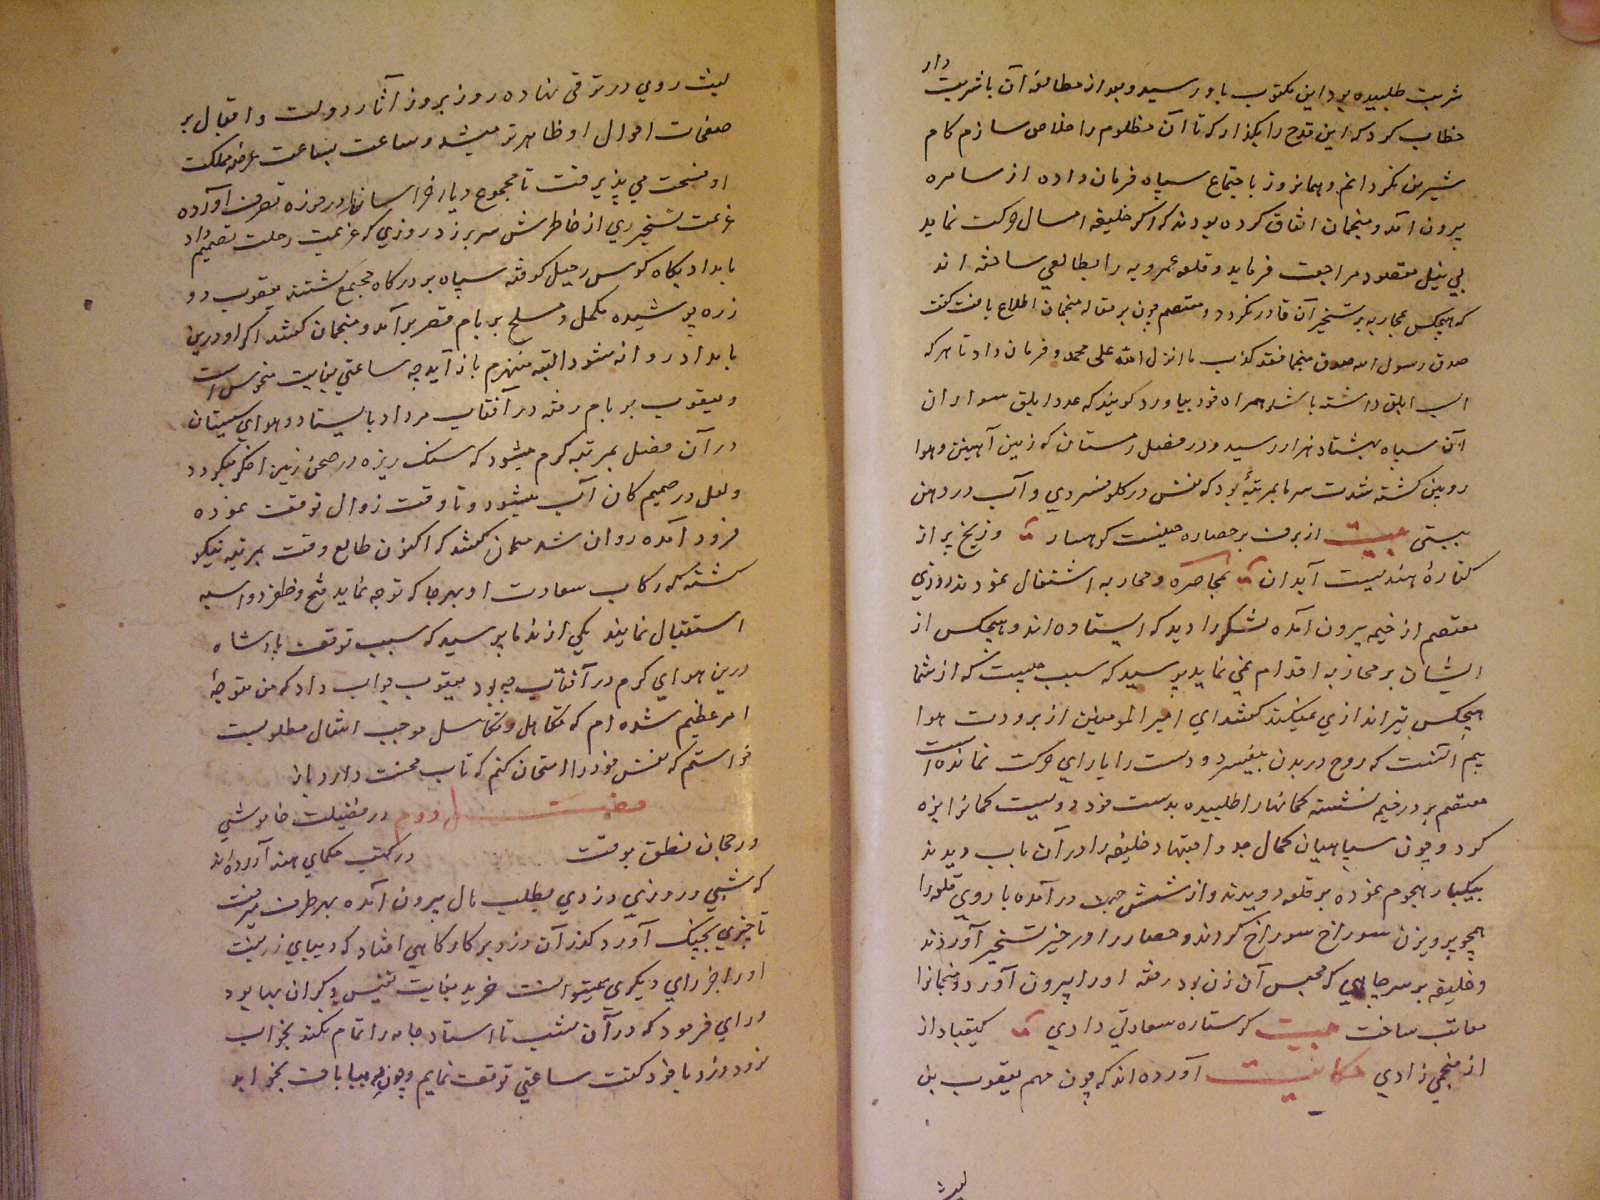 شربت طلبیده بود این مکتوب باو رسید و بعد از مطالعهٔ آن با شربت دار
خطاب کرد که این قدح را بگذار که تا آن مظلوم را خلاص سازم کام
شیرین نگردانم و همانروز باجتماع سپاه فرمان داده از سامره
بیرون آمد و منجمان اتفاق کرده بودند که اکر خلیفه امسال حرکت نماید
بی نیل مقصود مراجعت فرماید و قلعه عموریه را بطالعی ساخته اند
که هیچکس بمحاربه بر تسخیر آن قادر نگردد و معتصم چون بر مقاله منجمان اطلاع یافت گفت
صدق رسول الله صدق منجما فقد کذب ما انزل الله علی محمد و فرمان داد تا هر که
اسب ابلق داشته باشد همراه خود بیاورد کویند که عدد ابلق سواران
آن سپاه بهشتاد هزار رسید و در فصل زمستان که زمین آهنین و هوا
روین کشته شدت سرما بمرتبهٔ بود که نفس در کلو فسردی و آب در دهن
ببستی بیت از برف بر حصاره کوهسار و ز یخ پر از
کتارهٔ هندیست آبدان بمحاصره و محاربه اشتغال نمودند روزی
معتصم از خیمه بیرون آمده لشکر را دید که ایستاده اند و هیچکس از
ایشان بر محاربه اقدام نمی نماید پرسید که سبب چیست که از شما
هیچکس تیر اندازی نمیکند کفتند ای امیر المومنین از برودت هوا
بیم آنست که روح در بدن بیفسرد و دست را یارای حرکت نمانده است
معتصم بر در خیمه نشسته کمانها را طلبیده بدست خود دویست کمانرا زه
کرد و چون سپاهیان کمال جد و اجتهاد خلیفه را در آن باب دیدند
بیکبار هجوم نموده بر قلعه دویدند و از شش جهت در آمده باروی قلعه را
همچو پرویزن سوراخ سوراخ کردند و حصار را در حیز تسخیر آوردند
و خلیفه بر سر چاهی که محبس آن زن بود رفته او را بیرون آورد و منجمانرا
معاتب ساخت بیت کر ستاره سعادتی دادی کیقباد از
از منجمی زادی حکایت آورده اند که چون مهم یعقوب بن
لیث
لیث روی در ترقی نهاده روز بروز آثار دولت و اقبال بر
صفحات احوال او ظاهرتر میشد و ساعت بساعت عرصه مملکت
او فسحت می پذیرفت تا مجموع دیار خراسانرا در حوزه تصرف آورده
عزیمت تسخیر ری از خاطرش سر بر زد در روزی که عزیمت رحلت تصمیم داد
بامداد پکاه کوس رحیل کوفته سپاه بر درکاه مجتمع کشتند یعقوب دو
زره پوشیده مکمل و مسلح بر بام قصر بر آمد و منجمان کفتند اکر او درین
بامداد روانه شود البته منهزم باز آید چه ساعتی بغایت منحوس است
و یعقوب بر بام رفته در آفتاب مرداد بایستاد و هوای سیستان
در آن فصل بمرتبه کرم میشود که سنک ریزه در صحن زمین اخکر میکردد
و لعل در صمیم کان آب میشود و تا وقت زوال توقف نموده
فرود آمده روان شد منجمان کفتند که اکنون طالع وقت بمرتبه نیکو
کشته که رکاب سعادت او بهر جا که توجه نماید فتح و ظفر دو اسبه
استقبال نمایند یکی از ندما پرسید که سبب توقف پادشاه
درین هوای کرم در آفتاب چه بود یعقوب جواب داد که من متوجه
امر عظیم شده ام که تکاهل و تکاسل موجب انتقال مطلوبست
خواستم که نفس خود را امتحان کنم که تاب محنت دارد یا نه
فصل دوم در فضیلت خاموشی
و رجحان نطق بوقت در کتب حکمای هند آورده اند
که شبی در روزی دزدی بطلب مال بیرون آمده بهر طرف میرفت
تا چیزی بچنک آورد کذر آن دزد بر کارکاهی افتاد که دیبای زربفت
او را جز رای دیکری نمیتوانست خرید بغایت نفیس و کران بها بود
و رای فرمود که در آن شب تا استاد جامه را تمام نکند بخواب
نرود دزد با خود کفت ساعتی توقف نمایم و چون دیبا بافت بخوابد